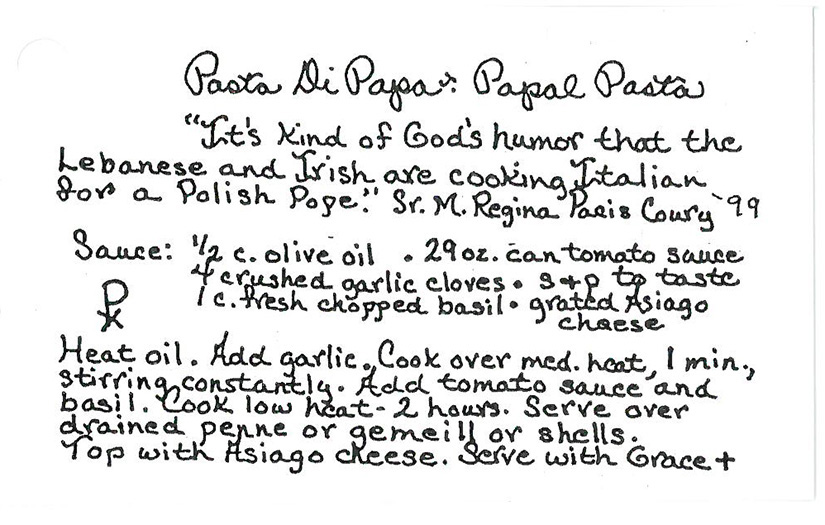 Pasta Di Papa: Papal Pasta
"It's kind of God's humor that the
Lebanese and Irish are cooking Italian
for a Polish Pope." Sr. M. Regina Pacis Coury '99
Sauce: 1/2 c. olive oil • 29 oz. can tomato sauce
4 crushed garlic cloves • s+p to taste
1 c. fresh chopped basil • grated Asiago
cheese
Heat oil. Add garlic. Cook over med. heat, 1 min.,
stirring constantly. Add tomato sauce and
basil. Cook low heat - 2 hours. Serve over
drained penne or gemeill or shells.
Top with Asiago cheese. Serve with Grace +